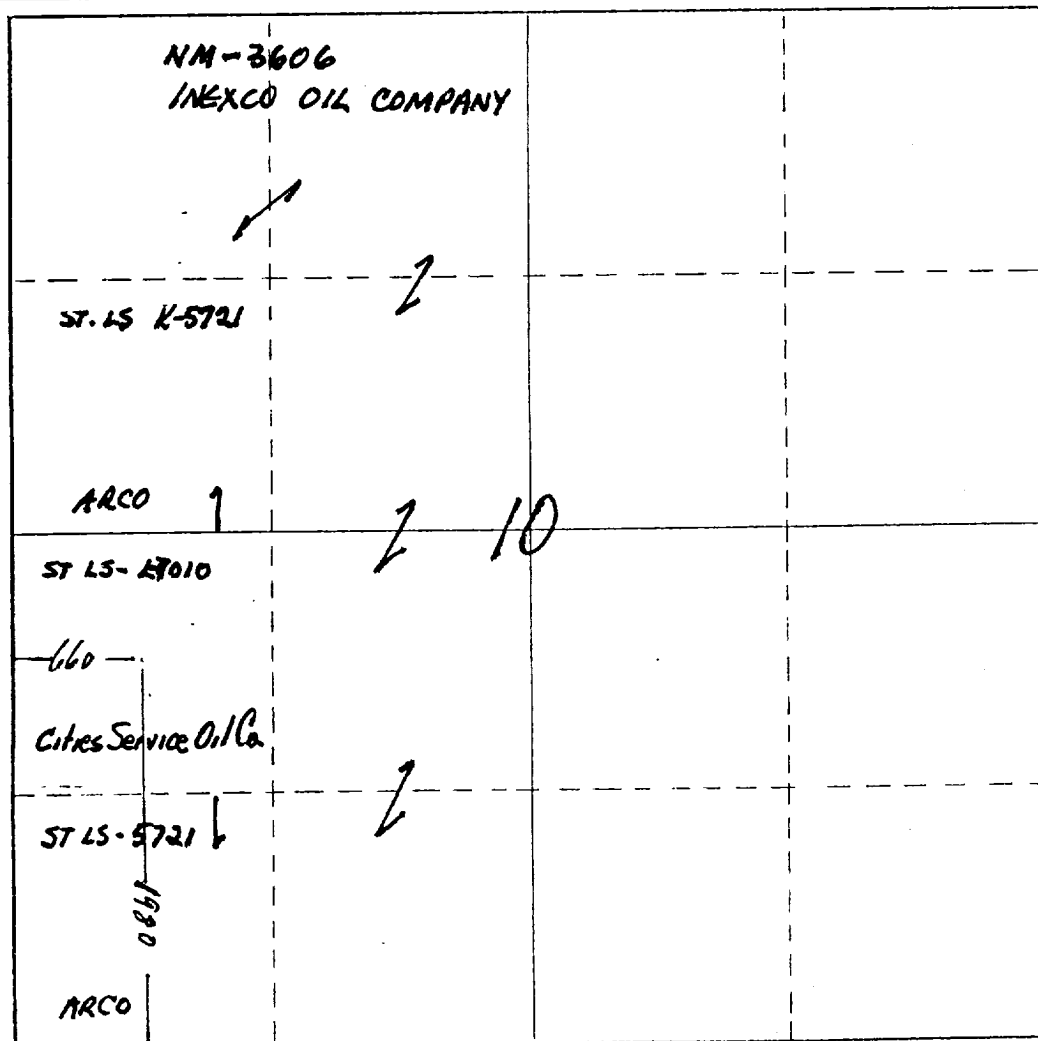 NM-3606
INEXCO OIL COMPANY
ST. LS K-5721
ARCO
10
ST LS-
660
Cities Service Oil Co.
ST LS-5721
1980
ARCO